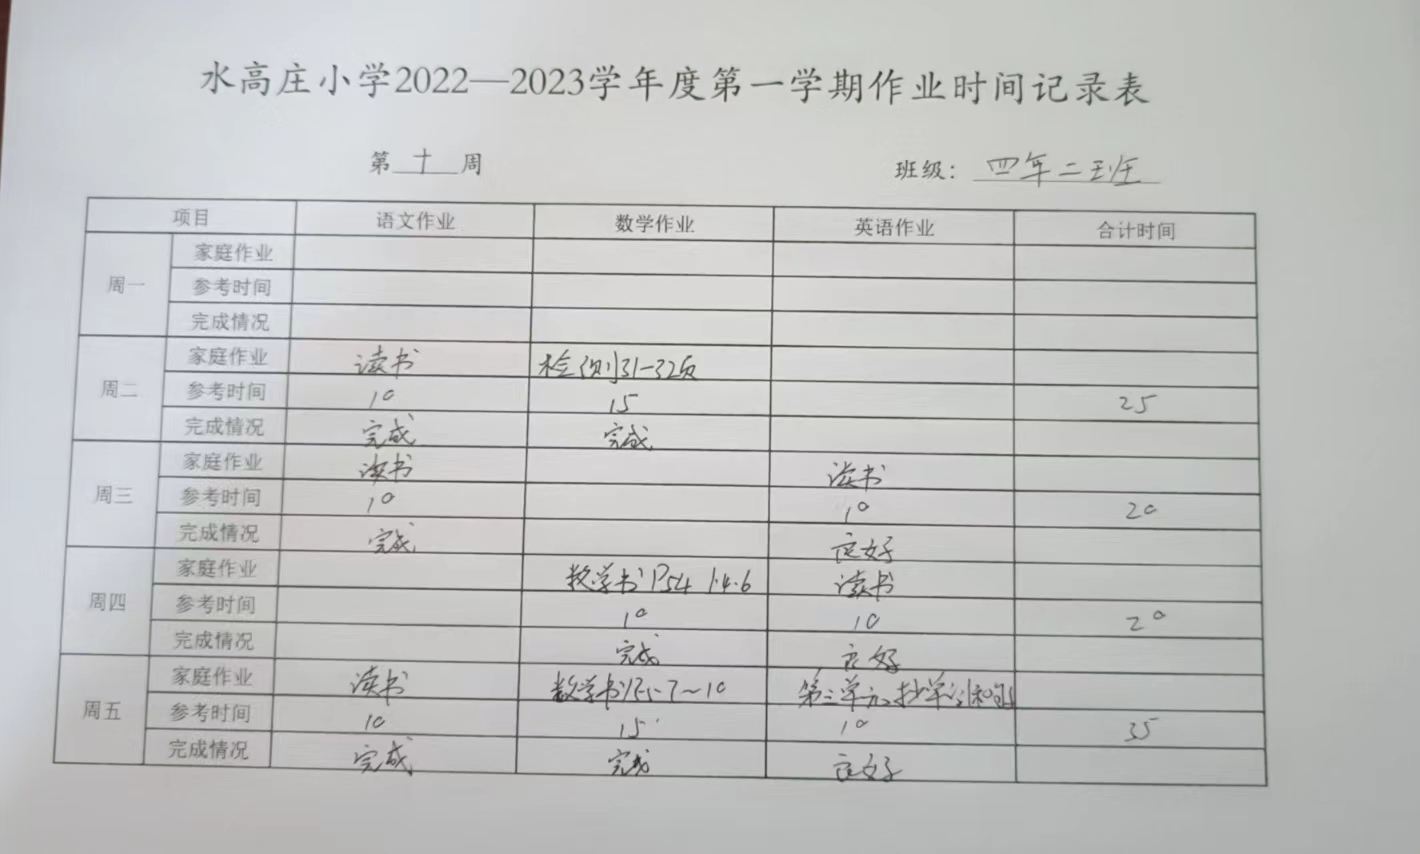 水高庄小学2022—2023学年度第一学期作业时间记录表
第 十 周 班级: 四年二班
项目 语文作业 数学作业 英语作业 合计时间
周一
家庭作业
参考时间
完成情况
周二
家庭作业 读书 检测31-32页
参考时间 10 15 25
完成情况 完成 完成
周三
家庭作业 读书 读书
参考时间 10 10 20
完成情况 完成 良好
周四
家庭作业 数学书P54 1.4.6 读书
参考时间 10 10 20
完成情况 完成 良好
周五
家庭作业 读书 数学书 7~10 第三单元抄单词和
参考时间 10 15 10 35
完成情况 完成 完成 良好